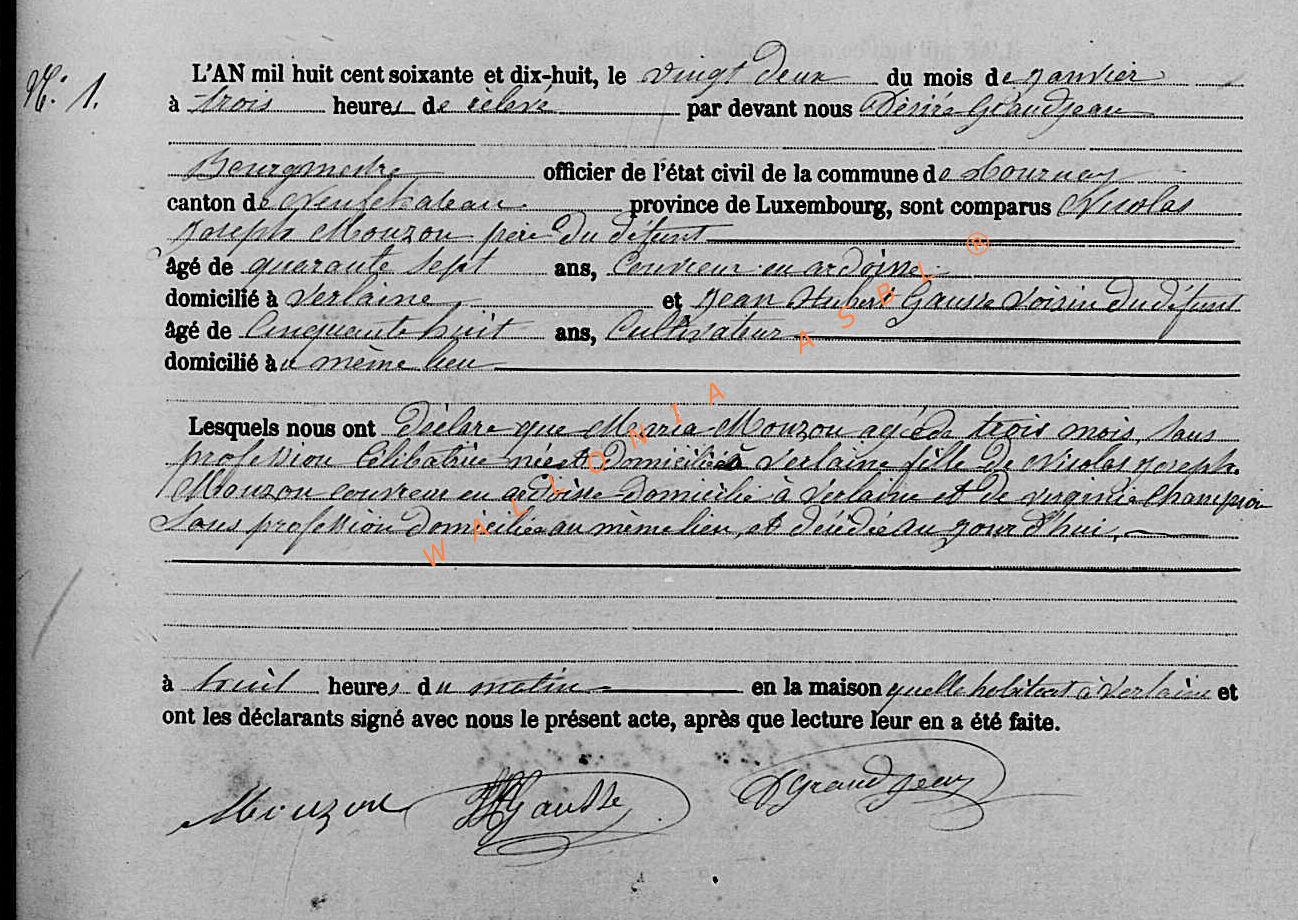 N. 1.
L'AN mil huit cent soixante et dix-huit, le vingt deux du mois de Janvier
à trois heures de relevé par devant nous Désiré Grandjean
Bourgmestre officier de l'état civil de la commune de Tournay
canton de Neufchateau province de Luxembourg, sont comparus Nicolas
Joseph Mouzon père du défunt
âgé de quarante sept ans, Couvreur en ardoise
domicilié à Verlaine, et Jean Hubert Gausse Voisin du défunt
âgé de Cinquante huit ans, Cultivateur
domicilié au même lieu
Lesquels nous ont déclaré que Maria Mouzon agée de trois mois, sans
profession Célibataire née et domiciliée à Verlaine fille de Nicolas Joseph
Mouzon couvreur en ardoise domicilié à Verlaine et de Virginie Champion
Sans profession domiciliée au même lieu, et décédée au jour d'hui,
à huit heures du matin en la maison quelle habitait à Verlaine et
ont les déclarants signé avec nous le présent acte, après que lecture leur en a été faite.
Mouzon JHGausse DGrandjean
WALLONIA ASBL ®